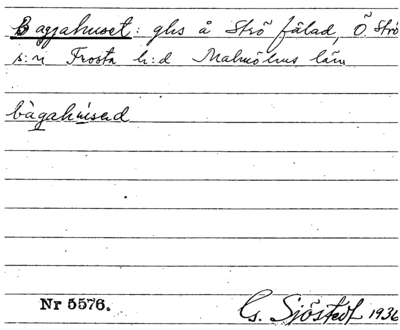 Baggahuset: ghs å Strö fälad, Ö. Strö
s:n Frosta h:d Malmöhus län
bàgahúsed
Nr 5576.
G. Sjöstedt 1936